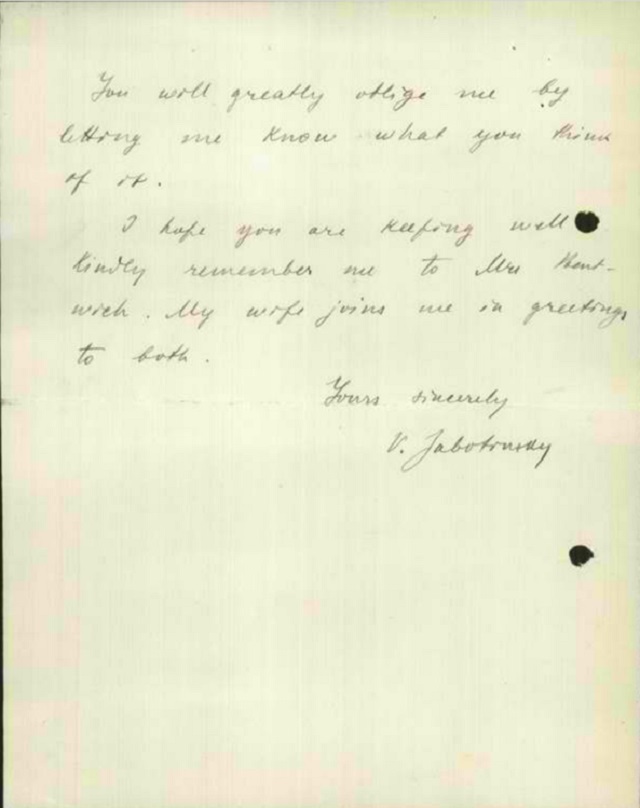 You will greatly oblige me by
letting me know what you think
of it.
I hope you are keeping well
Kindly remember me to Mrs Bent-
wich. My wife joins me in greetings
to both.
Yours sincerely
V. Jabotinsky